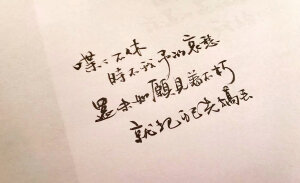 喋喋不休
時不我予的哀愁
還未如願見着不朽
就把自己先搞丟